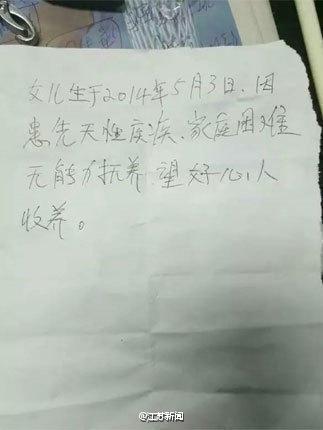 女儿生于2014年5月3日、因
患先天性疾病、家庭困难
无能力抚养 望好心人
收养。
@江苏新闻